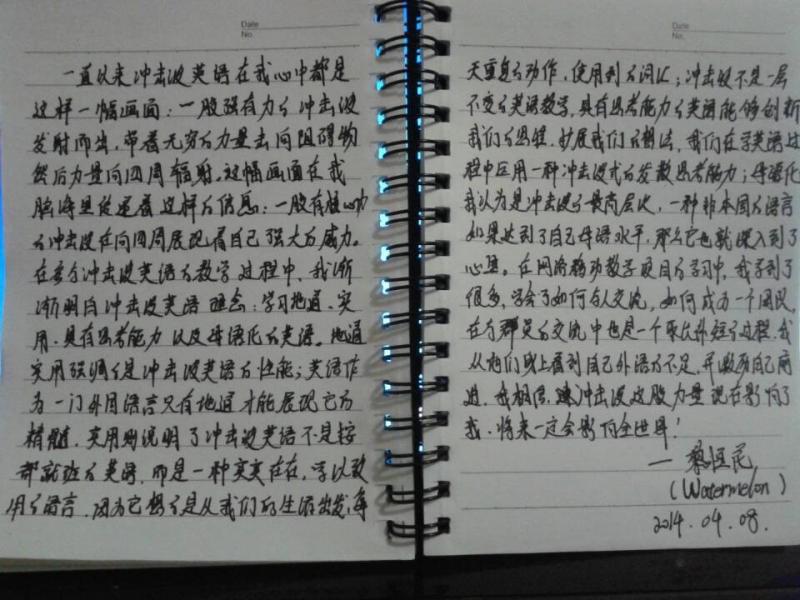 Date
No.
一直以来冲击波英语在我心中都是
这样一幅画面：一股强有力的冲击波
发射而出，带着无穷的力量去向阻碍物
然后力量向四周辐射。这幅画面在我
脑海里传递着这样的信息：一股有核心力
的冲击波在向四周展现着自己强大的威力。
在参与冲击波英语的教学过程中，我渐
渐明白冲击波英语理念：学习地道、实
用、具有思考能力以及母语化的英语。地道
实用强调的是冲击波英语的性能；英语作
为一门外国语言只有地道才能展现它的
精髓，实用则说明了冲击波英语不是按
部就班的英语，而是一种实实在在，学以致
用的语言，因为它都是从我们的生活出发，每
Date
No.
天重复的动作，使用到的词汇；冲击波不是一层
不变的英语教学，具有思考能力的英语能够创新
我们的思维，扩展我们的想法，我们在学英语过
程中运用一种冲击波式的发散思考能力；母语化
我认为是冲击波的最高层次，一种非本国的语言
如果达到了自己母语水平，那么它也就深入到了
心里。在网络移动教学项目的学习中，我学到了
很多，学会了如何与人交流，如何成为一个团民，
在与群员的交流中也是一个取长补短的过程，我
从他们身上看到自己外语的不足，并激励自己前
进。我相信，冲击波这股力量现在影响了
我，将来一定会影响全世界！
(Watermelon)
2014.04.08.